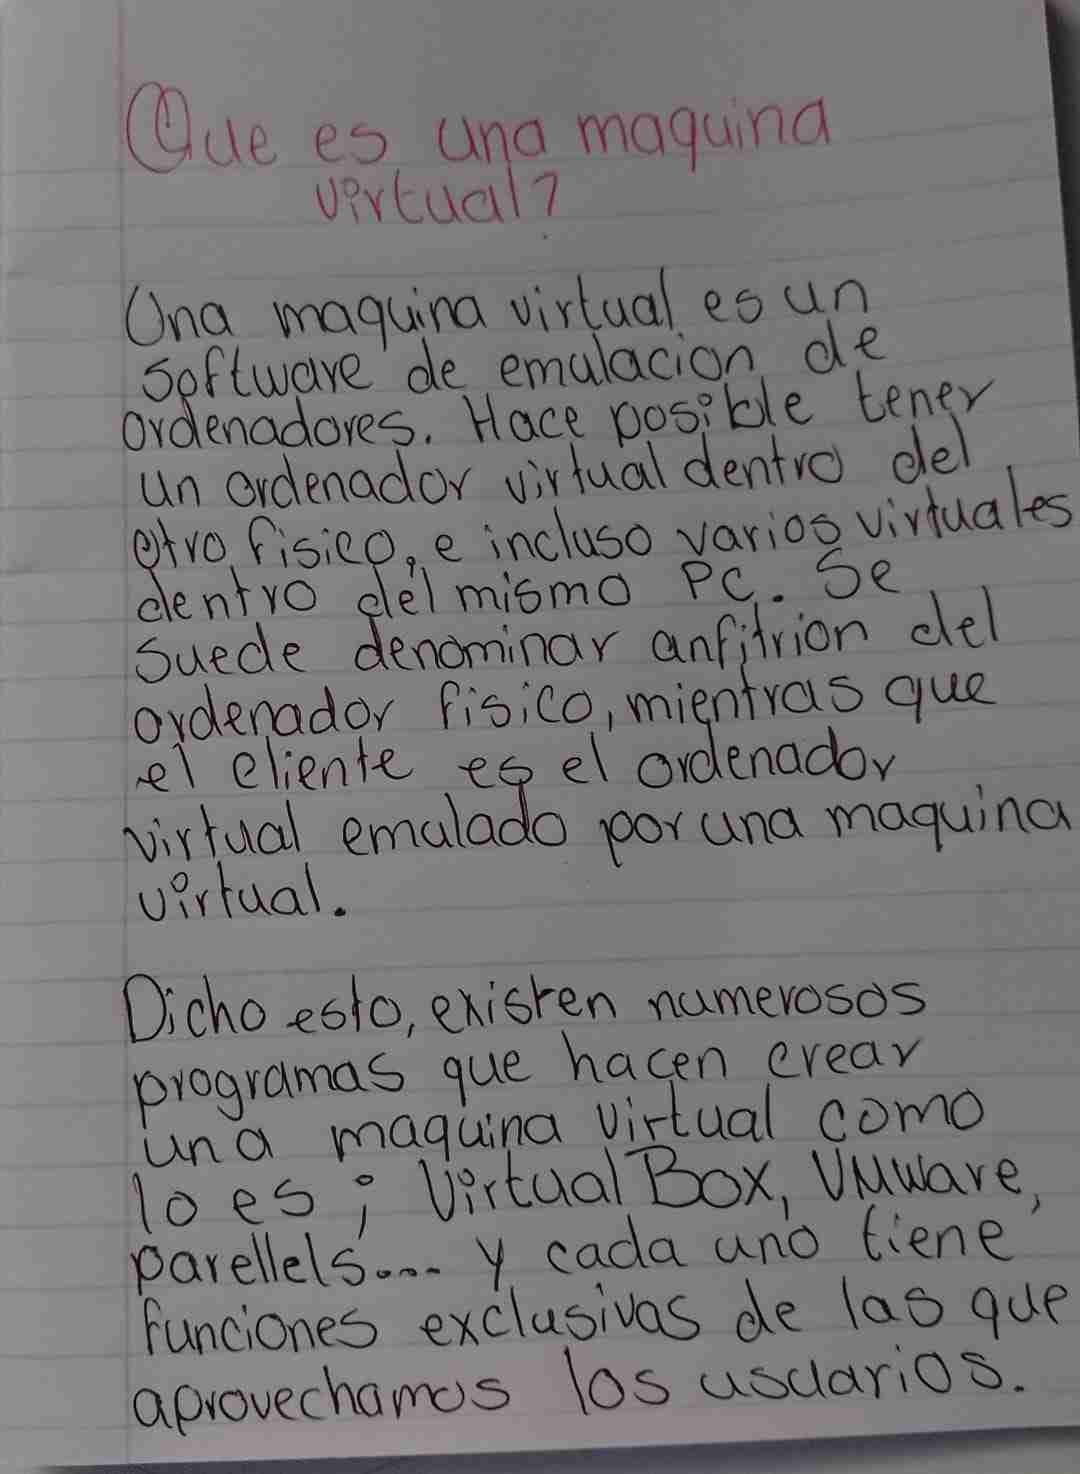 Que es una maquina
virtual?
Una maquina virtual es un
software de emulacion de
ordenadores. Hace posible tener
un ordenador virtual dentro del
otro fisico, e incluso varios virtuales
dentro del mismo PC. Se
suede denominar anfitrion del
ordenador fisico, mientras que
el cliente es el ordenador
virtual emulado por una maquina
virtual.
Dicho esto, existen numerosos
programas que hacen crear
una maquina virtual como
lo es; Virtual Box, VMware,
parellels.... y cada uno tiene
funciones exclusivas de las que
aprovechamos los usuarios.